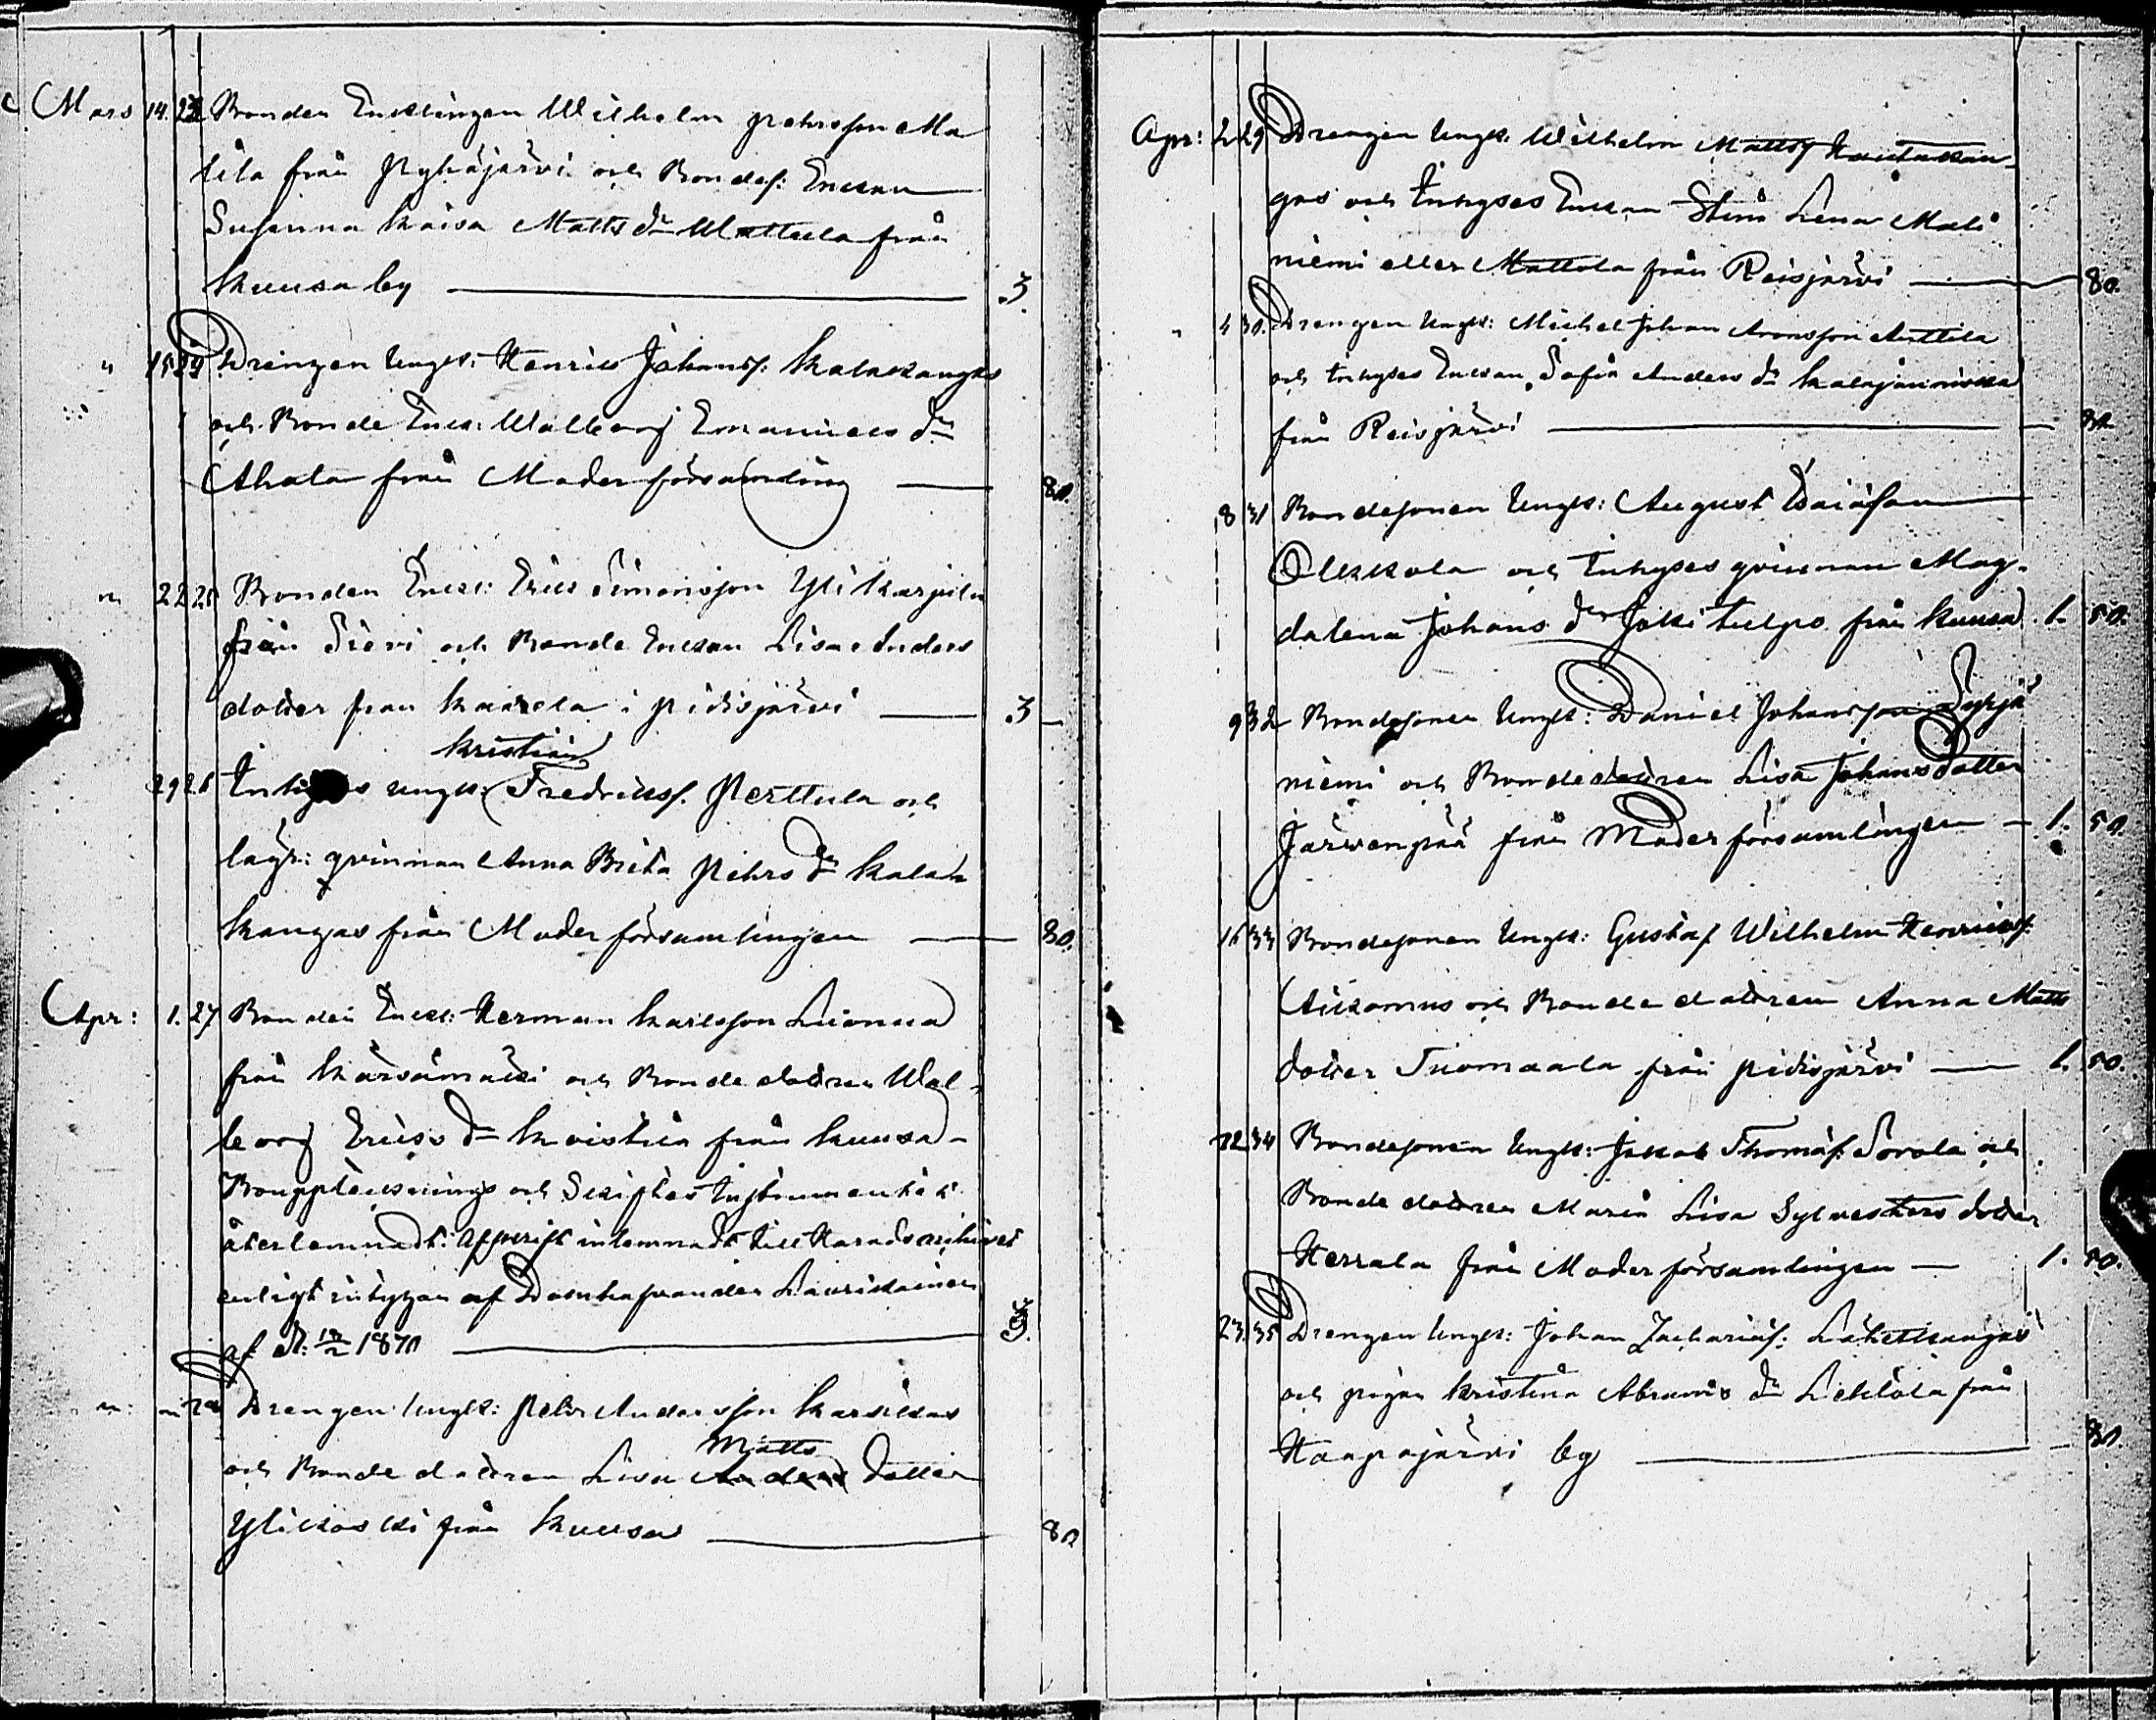 Mars 14. 23 Bonden Encklingen Wilhelm pehrsson Ma
tila från Pyhäjärvi och Bondes: Enckan
Susanna Kaisa Matts dr Mattula från
Kuusa by — 3.
" 15 24 Drengen Ungk: Henric Johanss: Kalakangas
och Bonde Enck: Walborg Emanuels dr
Ahola från Moderförsamling — 80.
" 22 25 Bonden Enck: Eric Simonsson Yli Karjula
från Sievi och Bonde Enckan Lisa Anders
dotter fran Kaarela i Pidisjärvi — 3 —
Kristian
29 26 Ungk: Fredrikss. Perttula och
lägr: qvinnan Anna Brita Pehrs dr Kala
kangas från Moderförsamlingen — 80.
Apr: 1. 27 Bonden Enckl: Herman Karlsson Luonua
från Kärsämäki och Bonde dottren Wal-
borg Erics dr Koistila från Kuusa -
Bouppteknings och Skiftes Instrumentet
återlemnadt: Afskrift inlemnadt till Harads archivet
enligt intygan af Domhafvanden Lauridainen
af d: 18/2 1870 — 3.
" " 28 Drengen Ungk: Pehr Andersson Karsikas
Matts
och Bonde dottren Lisa Anders dotter
Ylikoski från Kuusa — 80
Apr: 2 29 Drengen Ungk. Wilhelm Matts Hautakan
gas och Inhyses Enckan Stina Lena Mali
niemi eller Mattola från Reisjärvi — 80.
" 4 30. Drengen Ungk: Michel Johan Aronsson Anttila
och Inhyses Enckan Sofia Anders dr Kalajanniska
från Reisjärvi — 80
8 31 Bondesonen Ungk: August Isaiasson
Olkkola och Inhyses qvinnan Mag-
dalena Johans dr Jokitulpo från Kuusa 1. 50.
9 32 Bondesonen Ungk: Daniel Johansson Syrjä
niemi och Bondedottren Lisa Johans dotter
Järvenpää från Moderförsamlingen — 1. 50.
16 33 Bondesonen Ungk: Gustaf Wilhelm Henricss:
Aitomus och Bonde dottren Anna Matts
dotter Tuomaala från Pidisjärvi — 1. 50.
22 34 Bondesonen Ungk: Jakob Thomass: Sorola och
Bonde dottren Maria Lisa Sylvesters dotter
Herrala från Moderförsamlingen — 1. 50.
23. 35 Drengen Ungk: Johan Zachariass: Lähetkangas
och pigan Kristina Abrams dr Lehtola från
Haapajärvi by — 80.